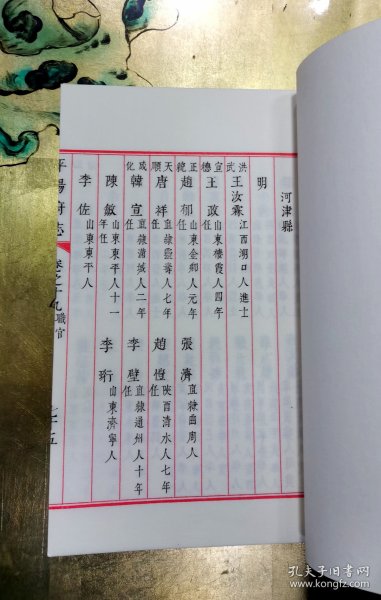 河津縣
明
洪武 王汝霖 江西湖口人進士
宣德 王政 山東棲霞人四年任
正統 趙郁 山東金鄉人元年任 張濟 直隸曲周人
天順 唐祥 直隸靈壽人七年任 趙愷 陝西清水人七年任
成化 韓宣 直隸肅城人二年任 李璧 直隸通州人十年任
陳敏 山東東平人十一年任 李珩 山東濟寧人
李佐 山東東平人
平陽府志 卷之十九 職官
孔夫子旧书网
kongfz.com